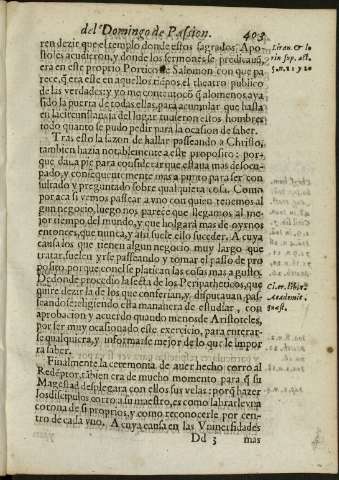 del Domingo de Passion. 403
ren dezir que el templo donde estos sagrados Apo-
stoles acudieron, y donde los sermones se predicauā,
era en este proprio Portico de Salomon con que pa-
rece, q̄ era este en aquellos tiēpos el theatro publico
de las verdades: y yo me contento cō q̄ alomenos aya
sido la puerta de todas ellas, para acumular que hasta
en la circunstancia del lugar tuuieron estos hombres
todo quanto se pudo pedir para la ocasion de saber.
Tras esto la sazon de hallar passeando a Christo,
tambien hazia notablemente a este proposito: por-
que daua pie para considerar que estaua mas desocu-
pado, y consequentemente mas a punto para ser con-
sultado y preguntado sobre qualquiera cosa. Como
por aca si vemos passear a vno con quien tenemos al-
gun negocio, luego nos parece que llegamos al me-
jor tiempo del mundo, y que holgarà mas de oyrnos
entonces, que nunca, y assi suele ello suceder. A cuya
causa los que tienen algun negocio muy largo que
tratar, suelen yrse passeando y tomar el passo de pro
posito porque con esse platican las cosas mas a gusto.
De donde procedio la secta de los Peripatheticos, que
quire dezir la de los que conferian, y disputauan, pas-
seandose: eligiendo esta manera de estudiar, con
aprobacion y acuerdo quando menos de Aristoteles,
por ser muy ocasionado este exercicio, para enterar-
se qualquiera, y informarse mejor de lo que le impor
ta saber.
Finalmente, la ceremonia de auer hecho corro al
Redēptor, tābien era de mucho momento para q̄ su
Magestad desplegara con ellos sus velas: porq̄ hazer
los discipulos corro a su maestro, es como labrarle vna
corona de si proprios, y como reconocerle por cen-
tro de cada vno. A cuya causa en las Vniuersidades
Dd 3 mas
Liran. & lo
rin sup. act.
Academic.